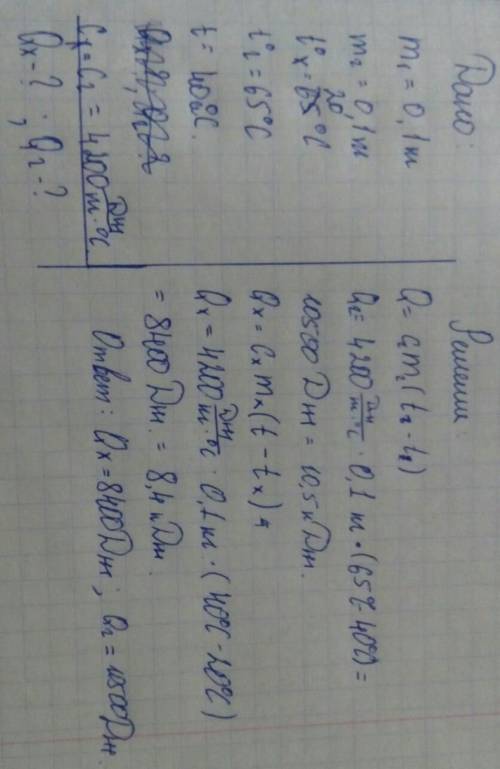 Дано:
m₁ = 0,1 кг
m₂ = 0,1 кг
t°ₓ = 20°C
t°₂ = 65°C
t = 40°C.
Cₓ = C₂ = 4200 Дж/кг·°C
Qₓ - ? , Q₂ - ?
Решение:
Q = cm₁(t₂ - t₁)
Q₂ = 4200 Дж/кг·°C · 0,1 кг · (65°C - 40°C) =
10500 Дж = 10,5 кДж.
Qₓ = Cₓ mₓ (t - tₓ)
Qₓ = 4200 Дж/кг·°C · 0,1 кг · (40°C - 20°C)
= 8400 Дж. = 8,4 кДж.
Ответ: Qₓ = 8400 Дж; Q₂ = 10500 Дж.